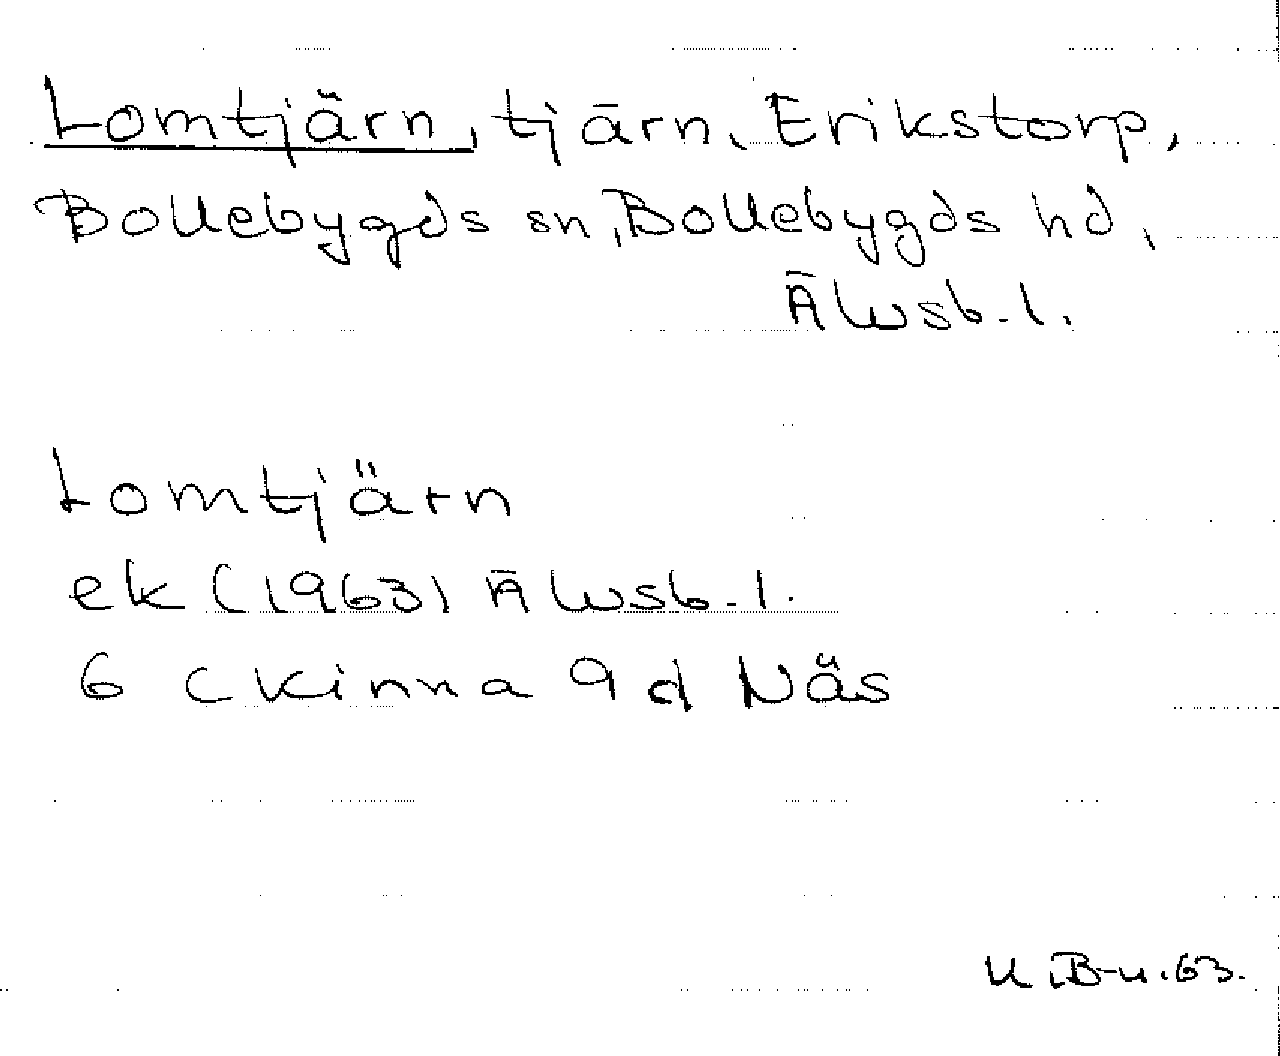 Lomtjärn, tjärn, Erikstorp,
Bollebygds sn, Bollebygds hd,
Älvsb. l.
Lomtjärn
ek (1963) Älvsb. l.
6 C Kinna 9 d Näs
U.B-u. 63.